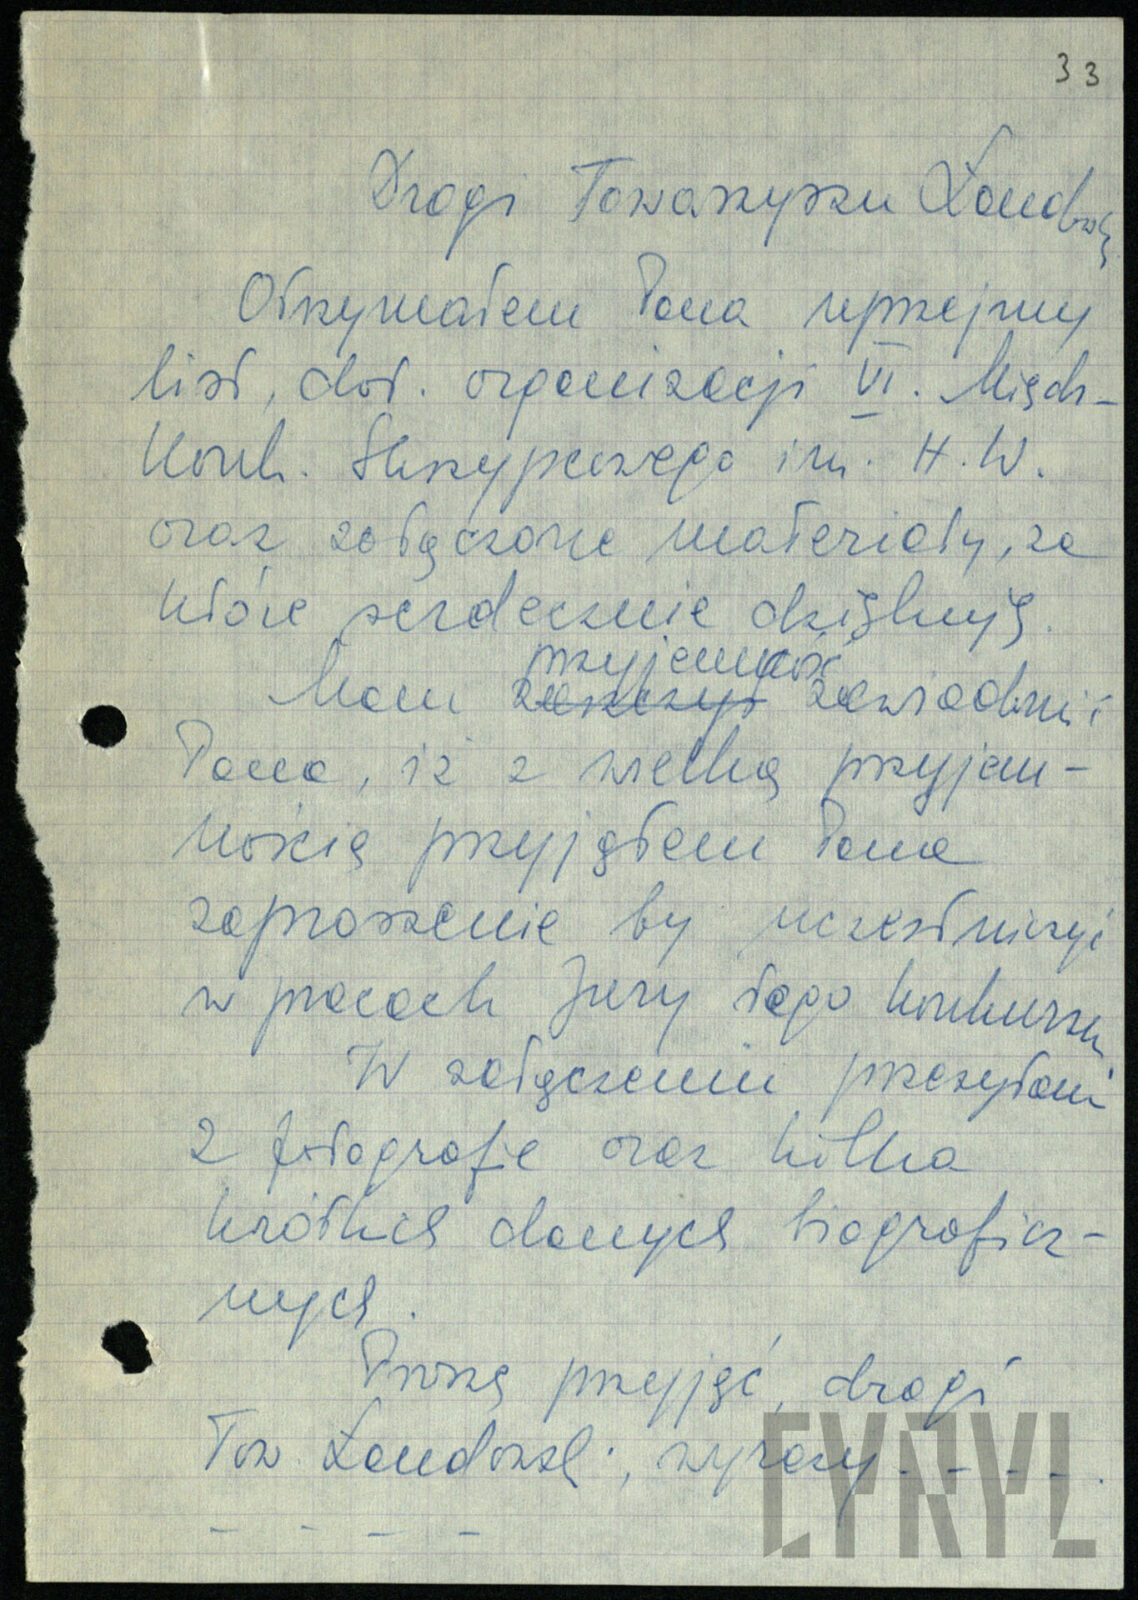 33
Drogi Towarzyszu
Otrzymałem Pana uprzejmy
list, dot. organizacji VI. Międz-
Konk. Skrzypcowego im. H. W.
oraz załączone materiały, za
które serdecznie dziękuję.
przyjemność
Mam zaszczyt zawiadomić
Pana, iż z wielką przyjem-
nością przyjąłem Pana
zaproszenie by uczestniczyć
w pracach Jury tego konkursu
W załączeniu przesyłam
2 fotografie oraz kilka
krótkich danych biograficz-
nych.
Proszę przyjąć, drogi
Tow. wyrazy - - - - .
- - - -
CYRYL